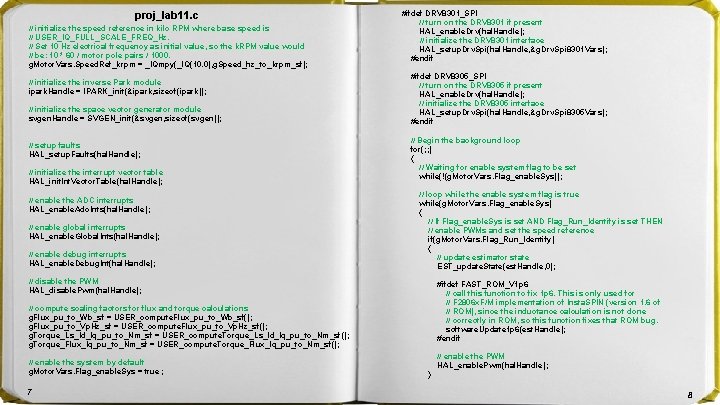 proj_lab11. c
// initialize the speed reference in kilo RPM where base speed is
// USER_IQ_FULL_SCALE_FREQ_Hz.
// Set 10 Hz electrical frequency as initial value, so the kRPM value would
// be: 10 * 60 / motor pole pairs / 1000.
g. Motor. Vars. Speed. Ref_krpm = _IQmpy(_IQ(10.0), g. Speed_hz_to_krpm_sf);
// initialize the inverse Park module
ipark. Handle = IPARK_init(&ipark, sizeof(ipark));
// initialize the space vector generator module
svgen. Handle = SVGEN_init(&svgen, sizeof(svgen));
// setup faults
HAL_setup. Faults(hal. Handle);
// initialize the interrupt vector table
HAL_init. Int. Vector. Table(hal. Handle);
// enable the ADC interrupts
HAL_enable. Adc. Ints(hal. Handle);
// enable global interrupts
HAL_enable. Global. Ints(hal. Handle);
// enable debug interrupts
HAL_enable. Debug. Int(hal. Handle);
// disable the PWM
HAL_disable. Pwm(hal. Handle);
// compute scaling factors for flux and torque calculations
g. Flux_pu_to_Wb_sf = USER_compute. Flux_pu_to_Wb_sf();
g. Flux_pu_to_Vp. Hz_sf = USER_compute. Flux_pu_to_Vp. Hz_sf();
g. Torque_Ls_Id_Iq_pu_to_Nm_sf = USER_compute. Torque_Ls_Id_Iq_pu_to_Nm_sf();
g. Torque_Flux_Iq_pu_to_Nm_sf = USER_compute. Torque_Flux_Iq_pu_to_Nm_sf();
// enable the system by default
g. Motor. Vars. Flag_enable. Sys = true ;
7
#ifdef DRV8301_SPI
// turn on the DRV8301 if present
HAL_enable. Drv(hal. Handle);
// initialize the DRV8301 interface
HAL_setup. Drv. Spi(hal. Handle, &g. Drv. Spi 8301 Vars);
#endif
#ifdef DRV8305_SPI
// turn on the DRV8305 if present
HAL_enable. Drv(hal. Handle);
// initialize the DRV8305 interface
HAL_setup. Drv. Spi(hal. Handle, &g. Drv. Spi 8305 Vars);
#endif
// Begin the background loop
for( ; ; )
{
// Waiting for enable system flag to be set
while(!(g. Motor. Vars. Flag_enable. Sys));
// loop while the enable system flag is true
while(g. Motor. Vars. Flag_enable. Sys)
{
// If Flag_enable. Sys is set AND Flag_Run_Identify is set THEN
// enable PWMs and set the speed reference
if(g. Motor. Vars. Flag_Run_Identify)
{
// update estimator state
EST_update. State(est. Handle, 0);
#ifdef FAST_ROM_V1p6
// call this function to fix 1p6. This is only used for
// F2806x. F/M implementation of Insta. SPIN (version 1.6 of
// ROM), since the inductance calculation is not done
// correctly in ROM, so this function fixes that ROM bug.
software. Update1p6(est. Handle);
#endif
// enable the PWM
HAL_enable. Pwm(hal. Handle);
}
8